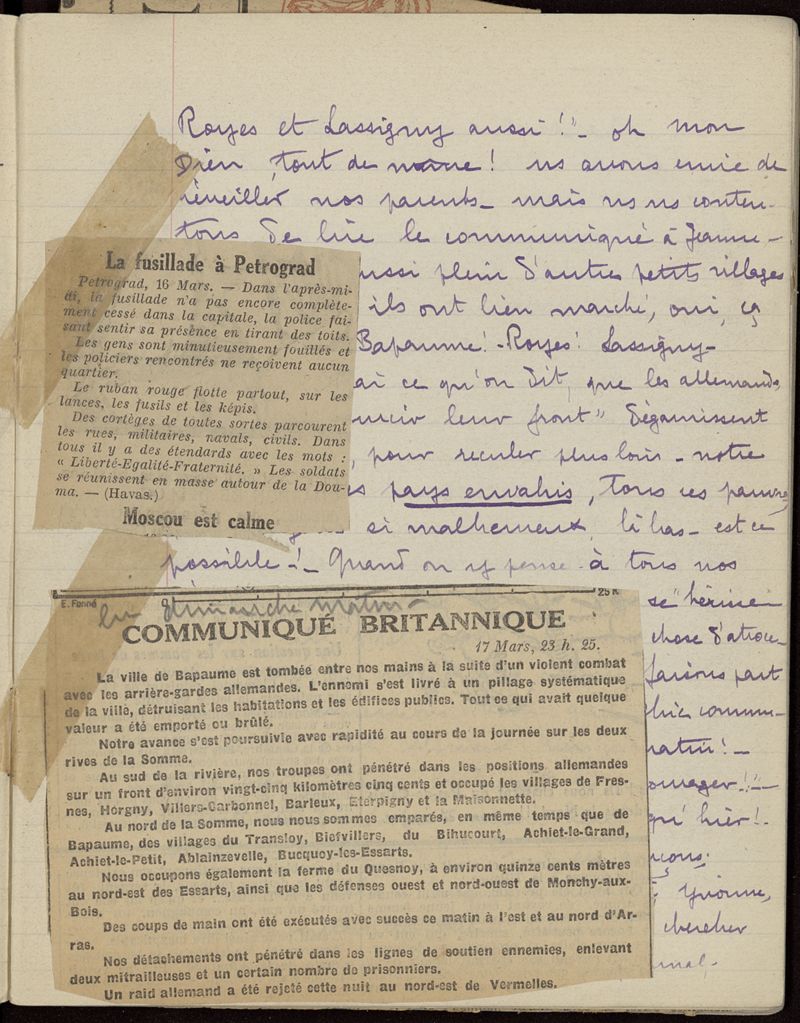 Royes et Lassigny aussi !" – oh mon
Dieu, tout de même ! ns avons envie de
réveiller nos parents – mais ns ns conten-
tons de lire le communiqué à Jeanne –
aussi plein d'autres petits villages
ils ont bien marché, oui, ça
Bapaume ! – Royes ! Lassigny –
ai ce qu'on dit, que les allemands,
leur front" dégarnissent
, pour reculer plus loin – notre
s pays envahis, tous ces pauvres
si malheureux, là bas – est ce
possible – ! – Quand on y pense à tous nos
La fusillade à Petrograd
Petrograd, 16 Mars. — Dans l'après-mi-
di, la fusillade n'a pas encore complète-
ment cessé dans la capitale, la police fai-
sant sentir sa présence en tirant des toits.
Les gens sont minutieusement fouillés et
les policiers rencontrés ne reçoivent aucun
quartier.
Le ruban rouge flotte partout, sur les
lances, les fusils et les képis.
Des cortèges de toutes sortes parcourent
les rues, militaires, navals, civils. Dans
tous il y a des étendards avec les mots :
« Liberté-Egalité-Fraternité. » Les soldats
se réunissent en masse autour de la Dou-
ma. — (Havas.)
Moscou est calme
E. Fonné
25 K
lu dimanche matin –
COMMUNIQUÉ BRITANNIQUE
17 Mars, 23 h. 25.
La ville de Bapaume est tombée entre nos mains à la suite d'un violent combat
avec les arrière-gardes allemandes. L'ennemi s'est livré à un pillage systématique
de la ville, détruisant les habitations et les édifices publics. Tout ce qui avait quelque
valeur a été emporté ou brûlé.
Notre avance s'est poursuivie avec rapidité au cours de la journée sur les deux
rives de la Somme.
Au sud de la rivière, nos troupes ont pénétré dans les positions allemandes
sur un front d'environ vingt-cinq kilomètres cinq cents et occupé les villages de Fres-
nes, Horgny, Villers-Carbonnel, Barleux, Eterpigny et la Maisonnette.
Au nord de la Somme, nous nous sommes emparés, en même temps que de
Bapaume, des villages du Transloy, Biefvillers, du Bihucourt, Achiet-le-Grand,
Achiet-le-Petit, Ablainzevelle, Bucquoy-les-Essarts.
Nous occupons également la ferme du Quesnoy, à environ quinze cents mètres
au nord-est des Essarts, ainsi que les défenses ouest et nord-ouest de Monchy-aux-
Bois.
Des coups de main ont été exécutés avec succès ce matin à l'est et au nord d'Ar-
ras.
Nos détachements ont pénétré dans les lignes de soutien ennemies, enlevant
deux mitrailleuses et un certain nombre de prisonniers.
Un raid allemand a été rejeté cette nuit au nord-est de Vermelles.
se hérisse
chose d'atroce
faisons part
commu-
matin ! –
! –
qu'hier !
Yvonne,
chercher
nal –